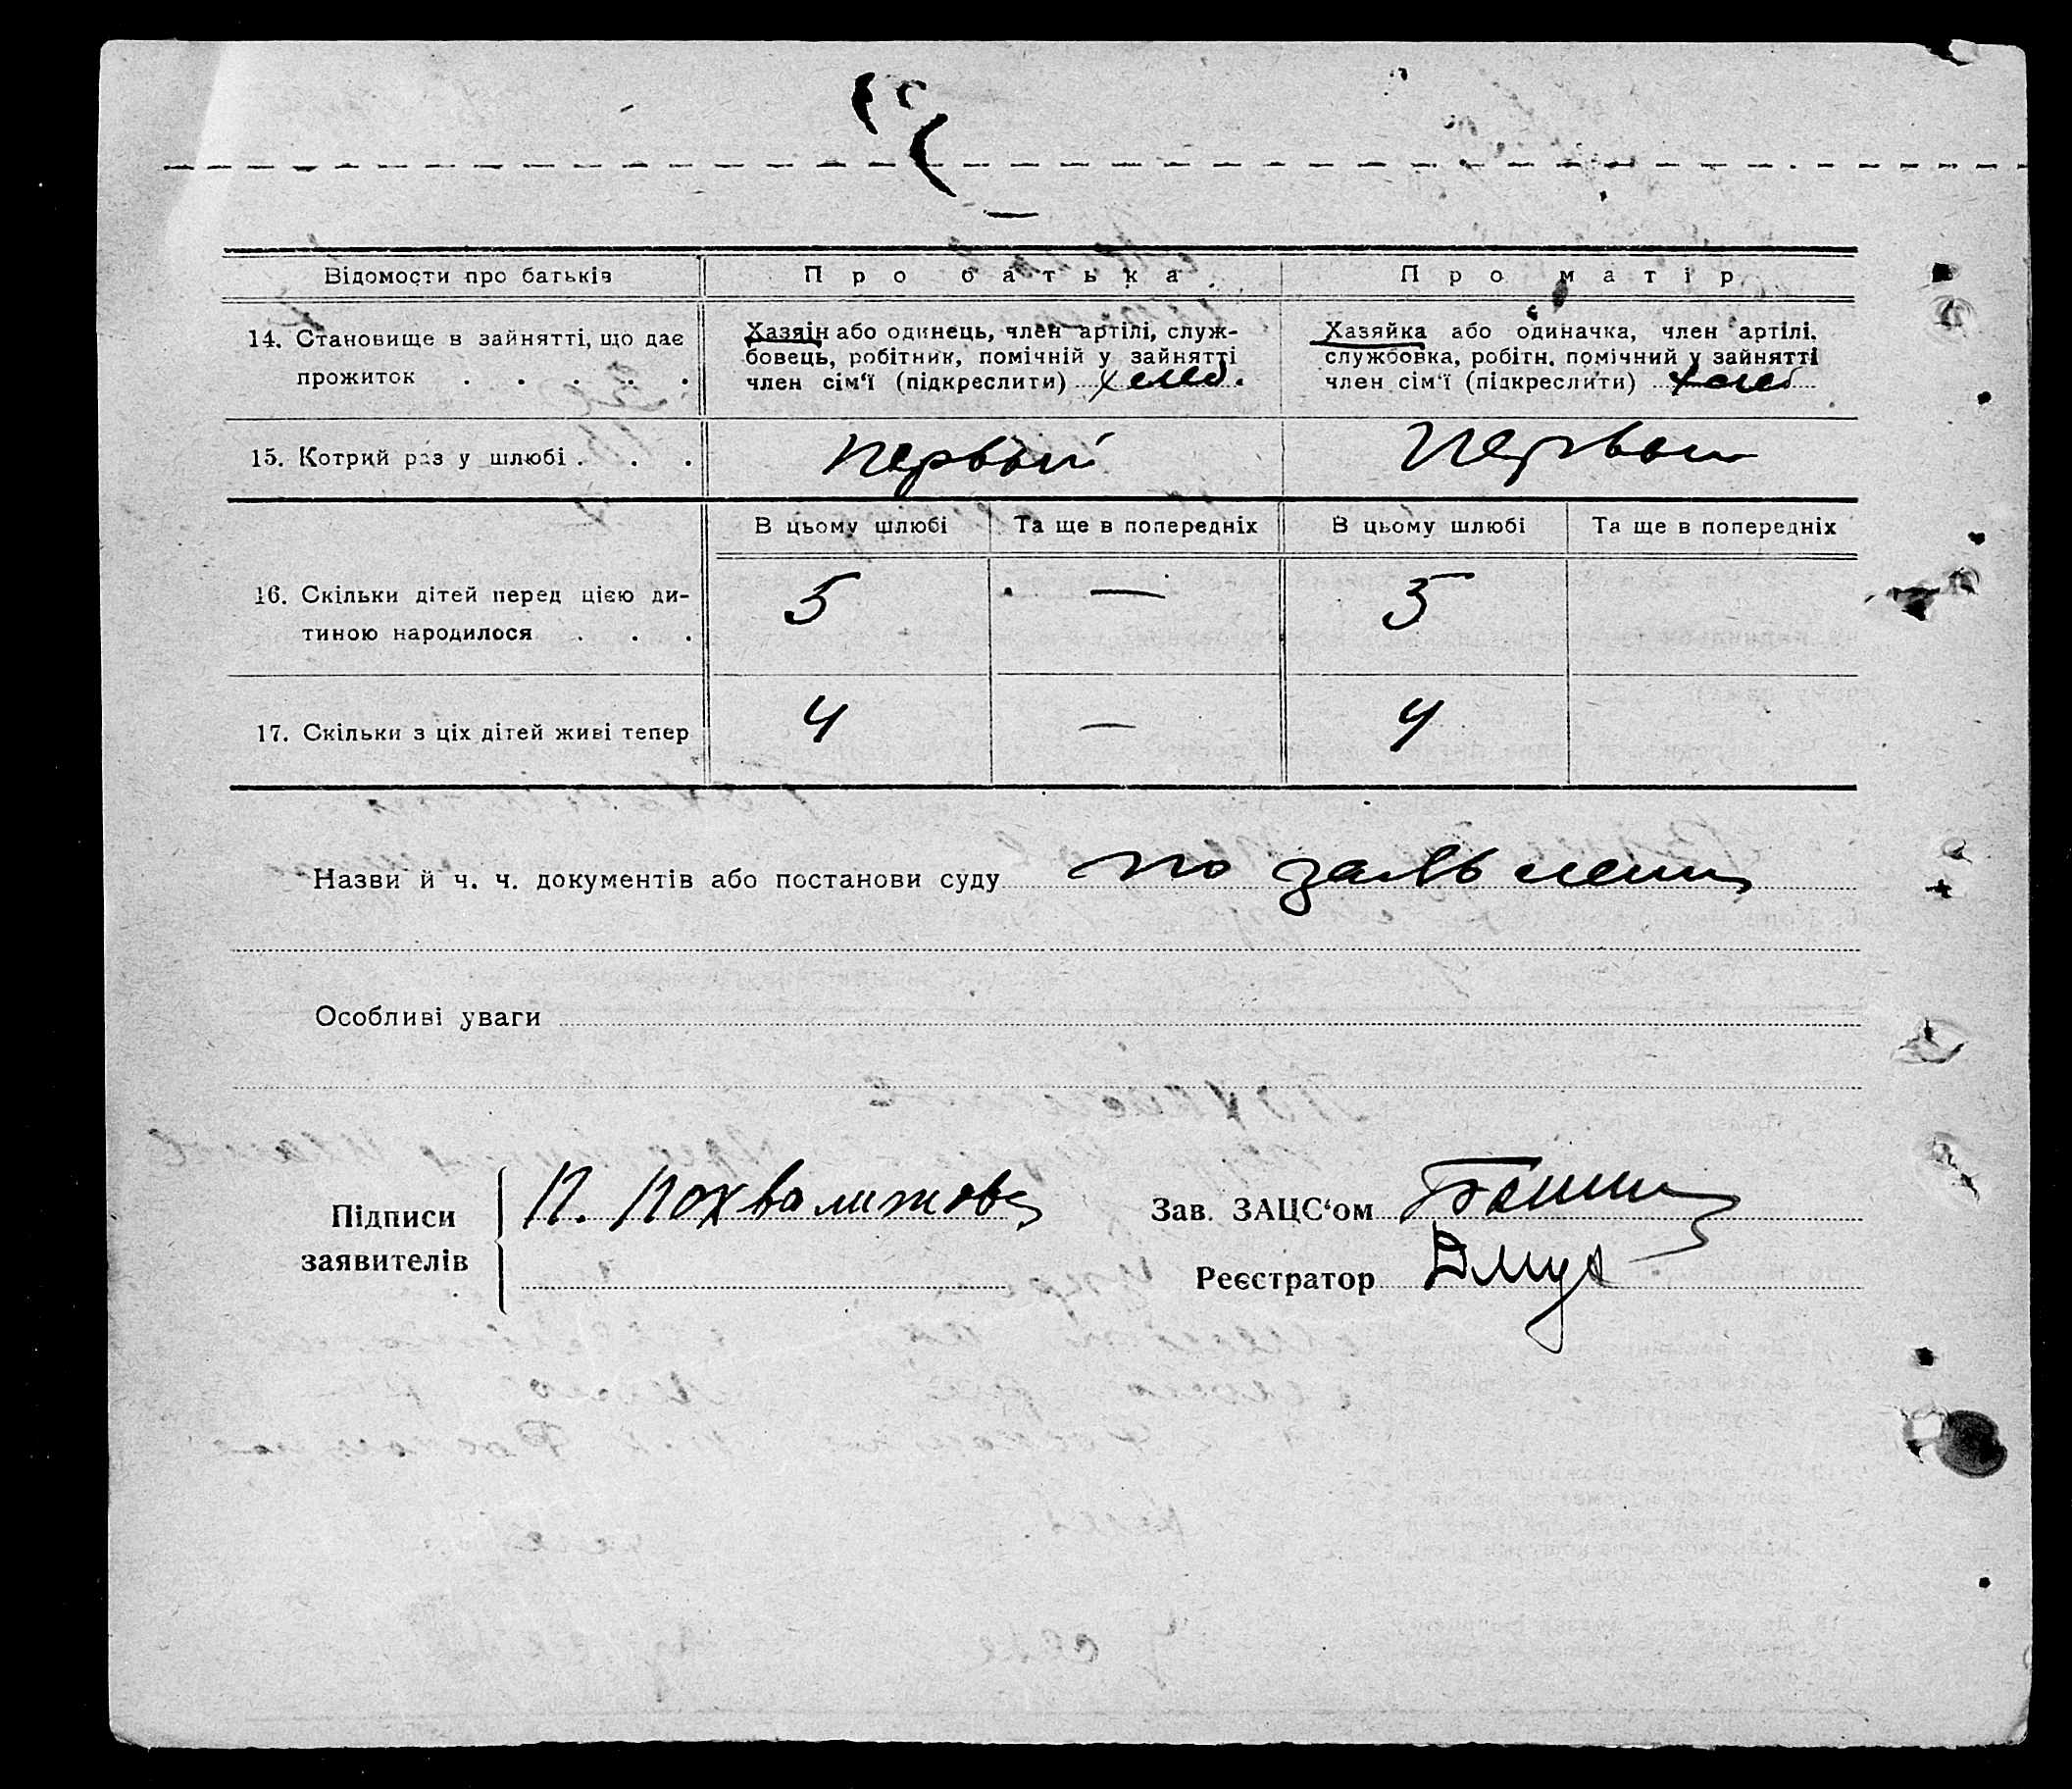 Відомости про батьків
Про батька
Про матір
14. Становище в зайнятті, що дає
прожиток . . . . .
Хазяїн або одинець, член артілі, служ-
бовець, робітник, помічній у зайнятті
член сім'ї (підкреслити) хлеб.
Хазяйка або одиначка, член артілі,
службовка, робітн. помічний у зайнятті
член сім'ї (підкреслити) хлеб
15. Котрий раз у шлюбі . . .
первый
первый
В цьому шлюбі
Та ще в попередніх
В цьому шлюбі
Та ще в попередніх
16. Скільки дітей перед цією ди-
тиною народилося . . .
5
—
5
17. Скільки з ціх дітей живі тепер
4
—
4
Назви й ч. ч. документів або постанови суду по заявлению
Особливі уваги
Підписи
заявителів
П. Похвалитова
Зав. ЗАЦС'ом
Реєстратор